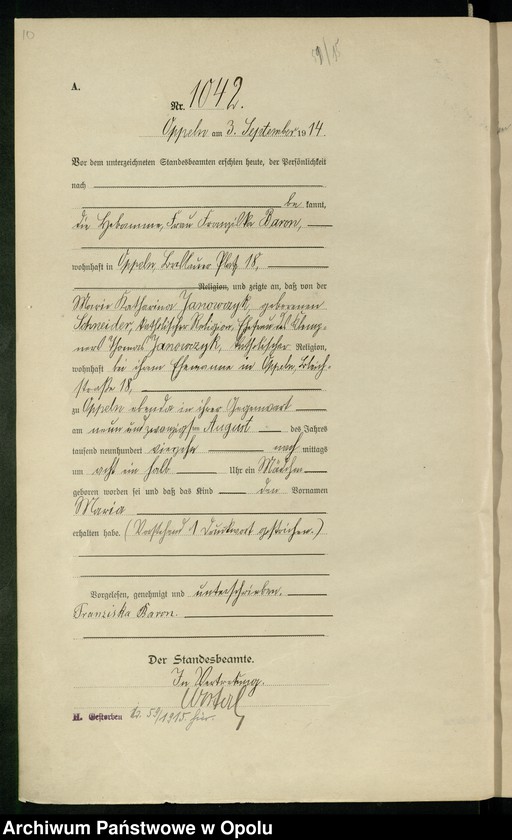 10
59/15
A.
Nr. 1042.
Oppeln am 3. September 1914.
Vor dem unterzeichneten Standesbeamten erschien heute, der Persönlichkeit
nach
be kannt,
die Hebamme, Frau Franziska Baron,
wohnhaft in Oppeln, Breslauer Platz 18,
Religion, und zeigte an, daß von der
Marie Katharina Janowczyk, geborenen
Schneider, katholischer Religion, Ehefrau des Klemp-
ners Thomas Janowczyk, katholischer Religion,
wohnhaft bei ihrem Ehemanne in Oppeln, Bleich-
straße 18,
zu Oppeln ebenda in ihrer Gegenwart
am neun und zwanzigsten August des Jahres
tausend neunhundert vierzehn nach mittags
um acht ein halb Uhr ein Mädchen
geboren worden sei und daß das Kind den Vornamen
Maria
erhalten habe. (Vorstehend 1 Druckwort gestrichen.)
Vorgelesen, genehmigt und unterschrieben.
Franziska Baron.
Der Standesbeamte.
In Vertretung.
H. Gestorben No. 59/1915 hier.
Archiwum Państwowe w Opolu